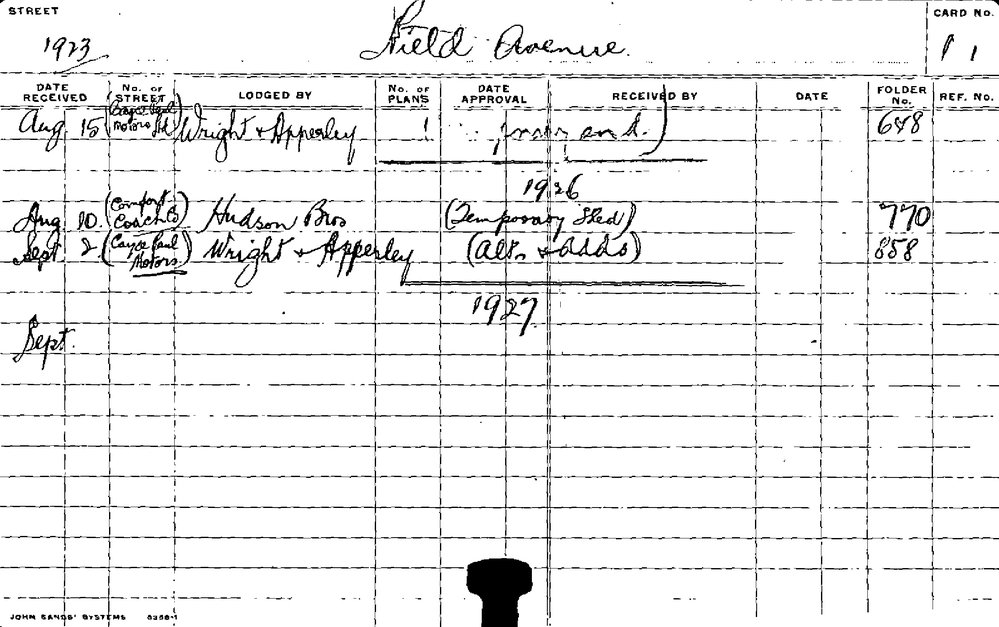 STREET
CARD No.
1923 Field Avenue. 1
DATE RECEIVED No. OF STREET LODGED BY No. OF PLANS DATE APPROVAL RECEIVED BY DATE FOLDER No. REF. No.
Aug 15 (Cayce Paul Motors Ltd) Wright & Apperley 1 648
1926
Aug 10. (Comfort Coaches) Hudson Bros (Temporary Shed) 770
Sept 2. (Cayce Paul Motors) Wright & Apperley (Alts & Adds) 858
1927
Sept.
JOHN SANDS' SYSTEMS